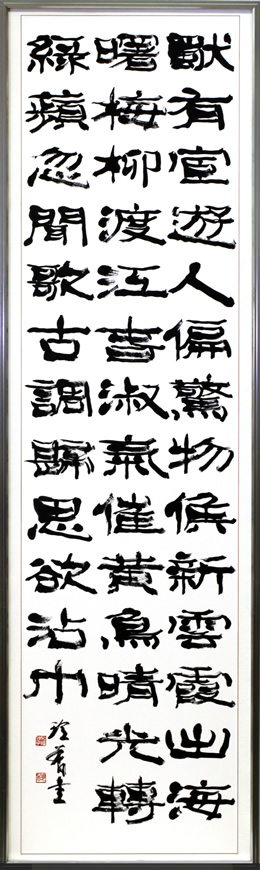 獨有宦遊人偏驚物候新雲霞出海
曙梅柳渡江春淑氣催黃鳥晴光轉
綠蘋忽聞歌古調歸思欲沾巾
香書